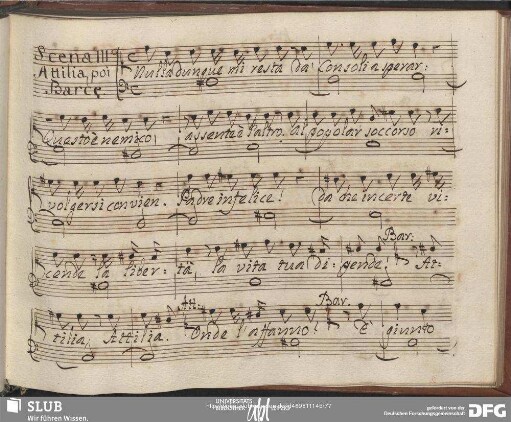 Scena III
Attilia, poi
Barce
Nulla dunque mi resta da' Consoli a sperar:
Questo è nemico, assente è l'altro. al popolar soccorso ri-
volgersi convien. Padre infelice! da che incerte vi-
Bar:
cende la liber- tà, la vita tua di- pende! At-
Att: Bar.
tilia, Attilia. Onde l'affanno! È giunto
SLUB
Wir führen Wissen.
UNIVERSITÄTS
gefördert von der
Deutschen Forschungsgemeinschaft
DFG